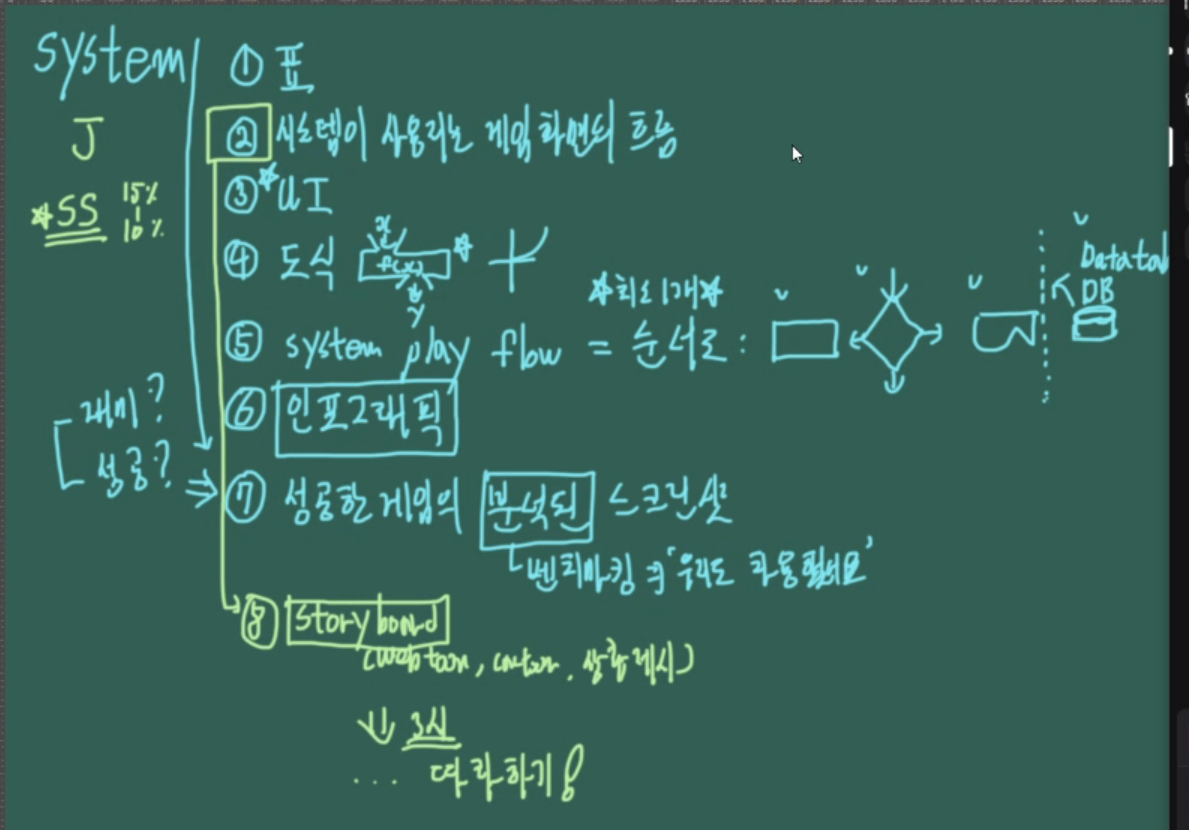 system
J
SS 15%
10%
① 표
② 시스템이 사용되는 게임 화면의 흐름
③ UI
④ 도식 x f(x) y
최소 1개
⑤ system play flow = 순서도 :
Datatab
DB
⑥ 인포그래픽
재미?
성공?
⑦ 성공한 게임의 분석된 스크린샷
벤치마킹 ⇒ '우리도 적용필요'
⑧ storyboard
(webtoon, cartoon, 상황제시)
3시
... 따라하기!